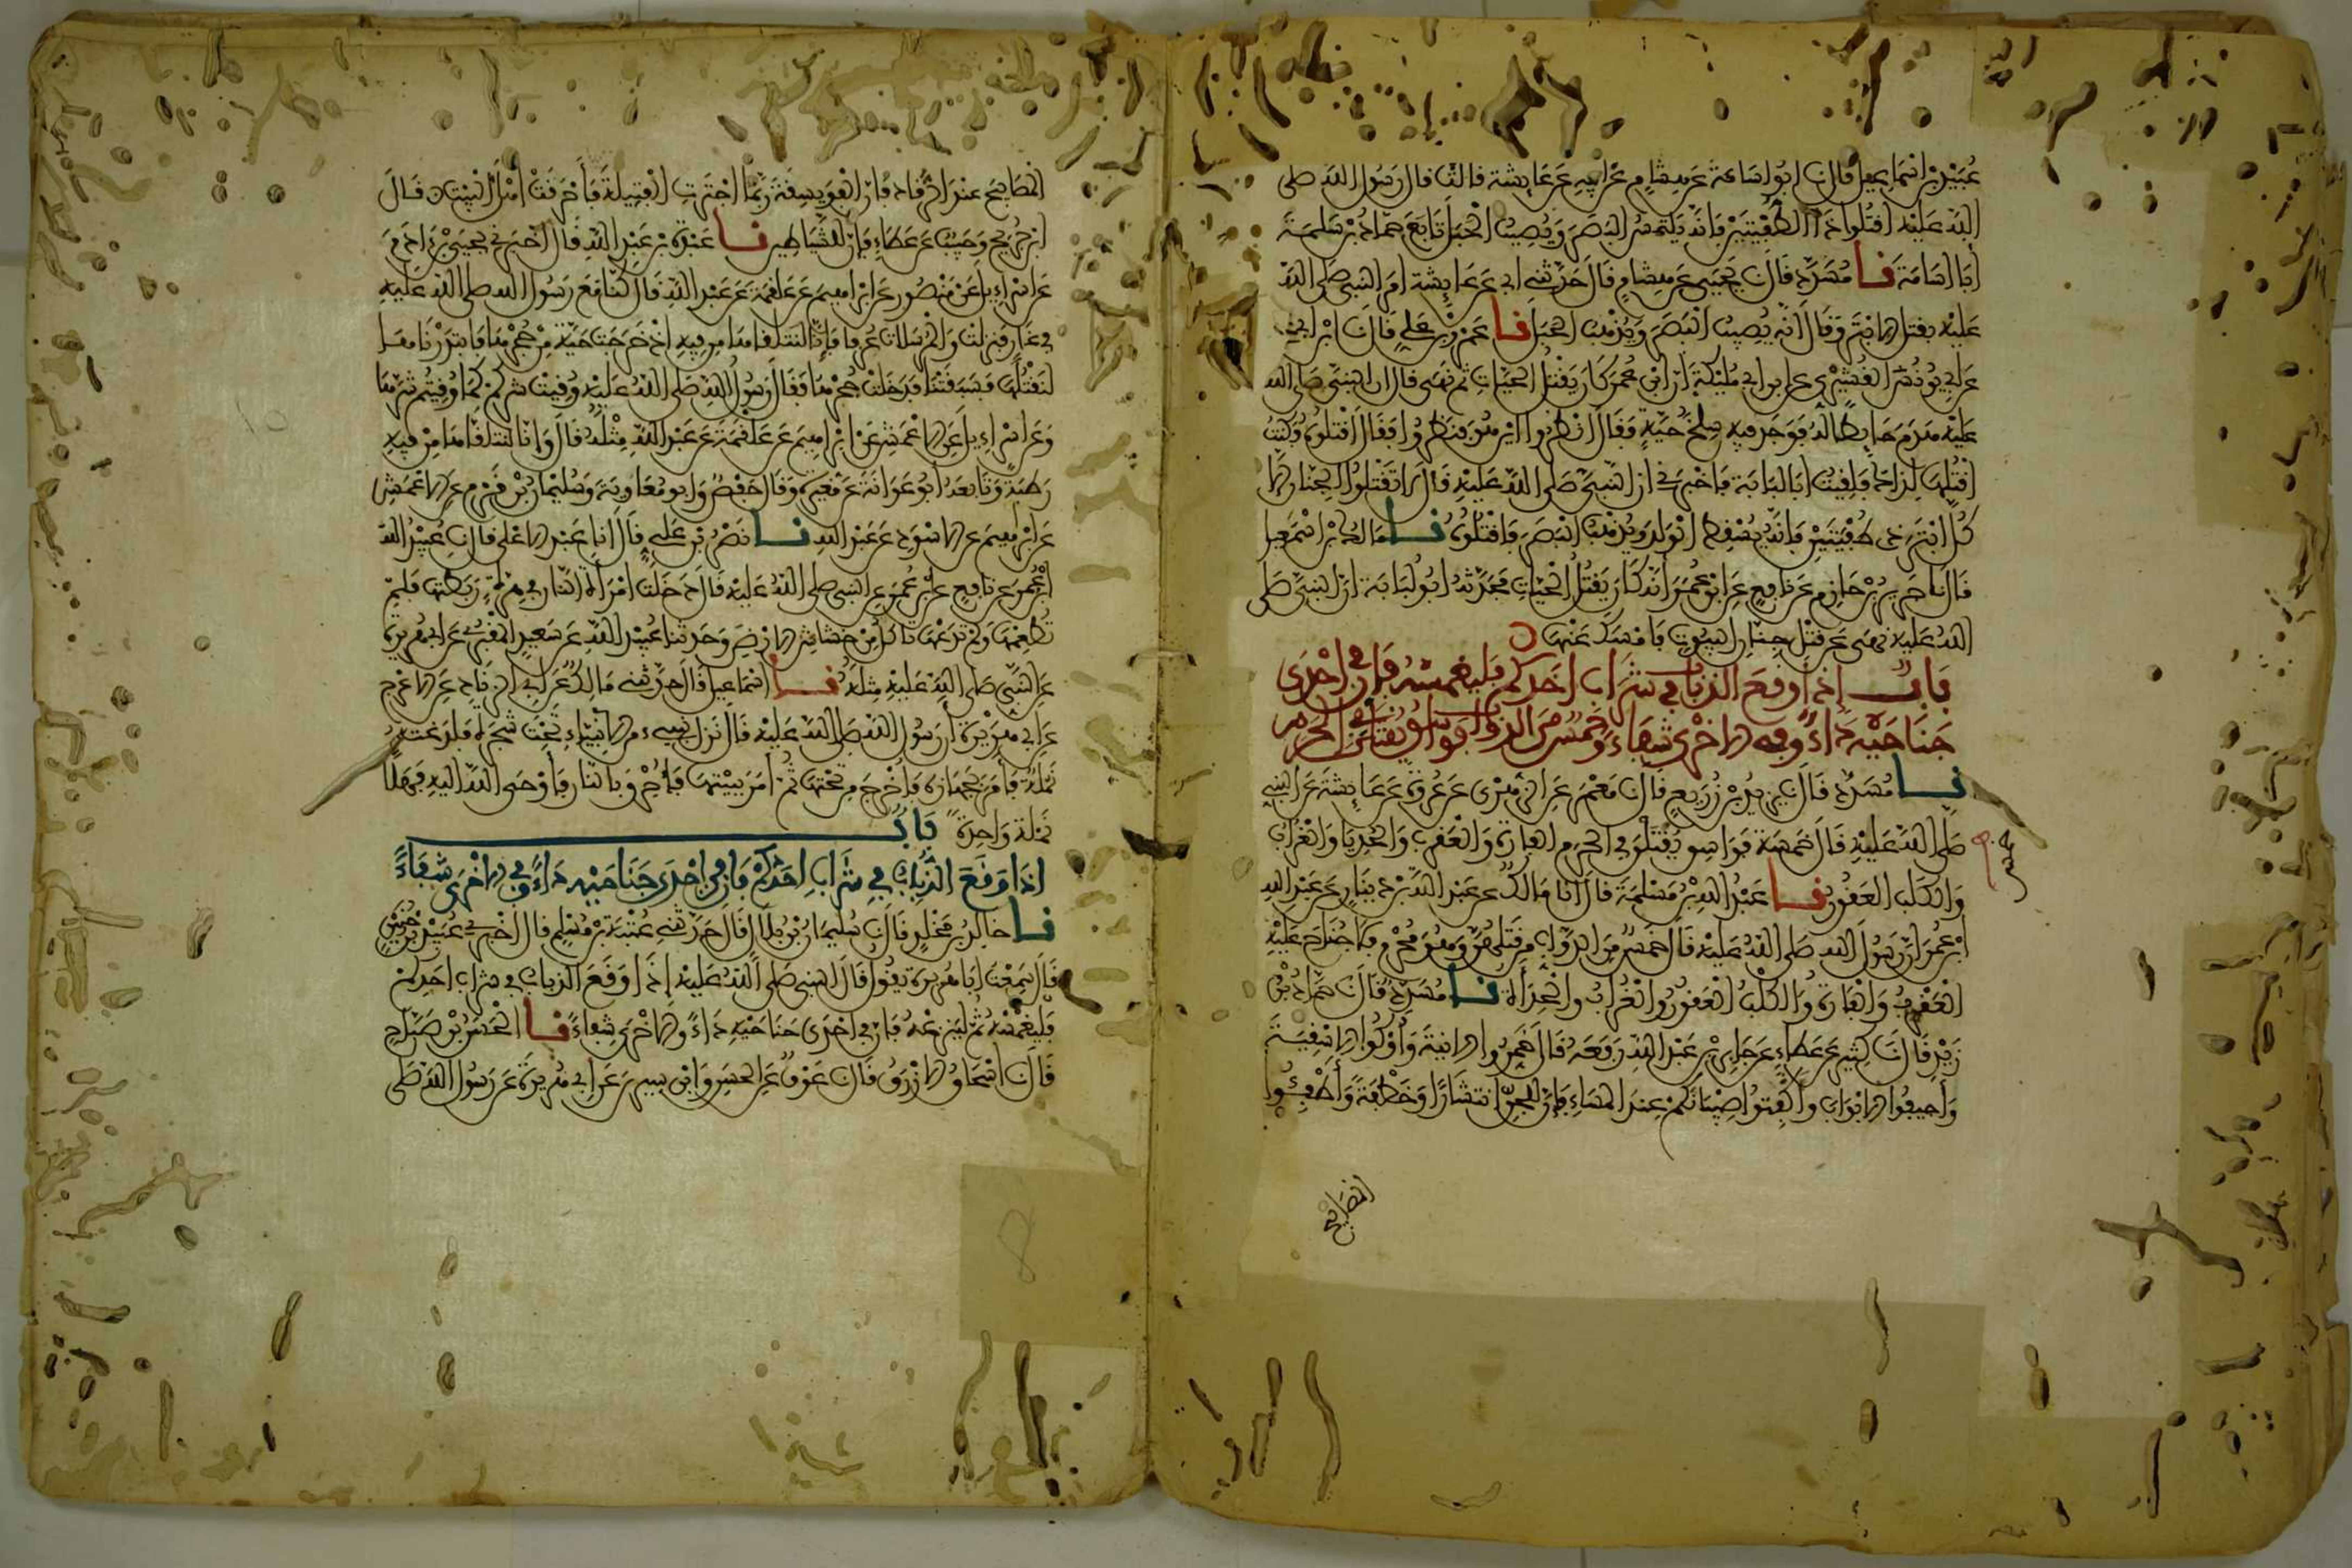 عبيد بن اسماعيل قال نا ابو اسامة عن هشام عن ابيه عن عايشة قالت قال رسول الله صلى
الله عليه اقتلوا ذا الطفيتين فانه يلتمس البصر ويصيب الحبل تابعه حماد بن سلمة
ابا اسامة نا مسدد قال نا يحيى عن هشام قال حدثني ابي عن عايشة امر النبي صلى الله
عليه بقتل الابتر وقال انه يصيب البصر ويذهب الحبل نا عمرو بن علي قال نا ابن ابي
عن ابي يونس القشيري عن ابن ابي مليكة ان ابن عمر كان يقتل الحيات ثم نهى قال ان النبي صلى الله
عليه هدم حايطا له فوجد فيه سلخ حية فقال انظروا اين هو فنظروا فقال اقتلوه فكنت
اقتلها لذلك فلقيت ابا لبابة فاخبرني ان النبي صلى الله عليه قال لا تقتلوا الجنان الا
كل ابتر ذي طفيتين فانه يسقط الولد ويذهب البصر فاقتلوه نا مالك بن اسمعيل
قال نا جرير بن حازم عن نافع عن ابن عمر انه كان يقتل الحيات فحدثه ابو لبابة ان النبي صلى
الله عليه نهى عن قتل جنان البيوت فامسك عنها
باب اذا وقع الذباب في شراب احدكم فليغمسه فان في احدى
جناحيه داء وفي الاخرى شفاء وخمس من الدواب فواسق يقتلن في الحرم
نا مسدد قال نا يزيد بن زريع قال نا معمر عن الزهري عن عروة عن عايشة عن النبي
صلى الله عليه قال خمسة فواسق يقتلن في الحرم الفارة والعقرب والحديا والغراب
خمس
والكلب العقور نا عبد الله بن مسلمة قال انا مالك عن عبد الله بن دينار عن عبد الله
ابن عمر ان رسول الله صلى الله عليه قال خمس من الدواب من قتلهن وهو محرم فلا جناح عليه
العقرب والفارة والكلب العقور والغراب والحدأة نا مسدد قال نا حماد بن
زيد قال نا كثير عن عطاء عن جابر بن عبد الله رفعه قال خمروا الانية وأوكوا الاسقية
وأجيفوا الابواب وأكفتوا صبيانكم عند المساء فان للجن انتشارا وخطفة وأطفئوا
المصابيح
المصابيح عند الرقاد فان الفويسقة ربما اجترت الفتيلة فأحرقت اهل البيت قال
ابن جريج وحبيب عن عطاء فان للشياطين نا عبدة بن عبد الله قال اخبرني يحيى بن ادم
عن اسراءيل عن منصور عن ابراهيم عن علقمة عن عبد الله قال كنا مع رسول الله صلى الله عليه
في غار فنزلت والمرسلات عرفا فإنا لنتلقاها من فيه اذ خرجت حية من جحرها فابتدرناها
لنقتلها فسبقتنا فدخلت جحرها فقال رسول الله صلى الله عليه وقيت شركم كما وقيتم شرها
وعن اسراءيل عن الاعمش عن ابراهيم عن علقمة عن عبد الله مثله قال وانا لنتلقاها من فيه
رطبة وتابعه ابو عوانة عن مغيرة وقال حفص وابو معاوية وسليمان بن قرم عن الاعمش
عن ابراهيم عن الاسود عن عبد الله نا نصر بن علي قال انا عبد الاعلى قال نا عبيد الله
ابن عمر عن نافع عن ابن عمر عن النبي صلى الله عليه قال دخلت امرأة النار في هرة ربطتها فلم
تطعمها ولم تدعها تاكل من خشاش الارض وحدثنا عبيد الله عن سعيد المقبري عن ابي هريرة
عن النبي صلى الله عليه مثله نا اسماعيل قال حدثني مالك عن ابي الزناد عن الاعرج
عن ابي هريرة ان رسول الله صلى الله عليه قال نزل نبيء من الانبياء تحت شجرة فلدغته
نملة فأمر بجهازه فأخرج من تحتها ثم امر ببيتها فأحرق بالنار فأوحى الله اليه فهلا
نملة واحدة باب
اذا وقع الذباب في شراب احدكم فان في احدى جناحيه داء وفي الاخرى شفاء
نا خالد بن مخلد قال نا سليمان بن بلال قال حدثني عتبة بن مسلم قال اخبرني عبيد بن حنين
قال سمعت ابا هريرة يقول قال النبي صلى الله عليه إذا وقع الذباب في شراب احدكم
فليغمسه ثم لينزعه فان في احدى جناحيه داء والاخرى شفاء نا الحسن بن صباح
قال نا اسحاق الازرق قال نا عوف عن الحسن وابن سيرين عن ابي هريرة عن رسول الله صلى